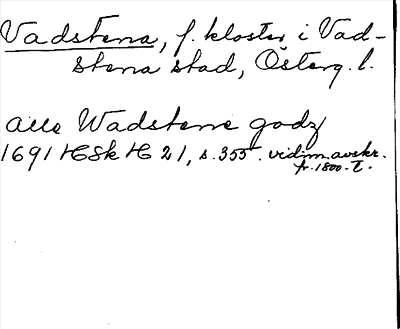 Vadstena, f. kloster i Vad-
stena stad, Österg. l.
alla Wadstene godz
1691 HSk H 21, s. 355. vidim. avskr.
fr. 1800-t.